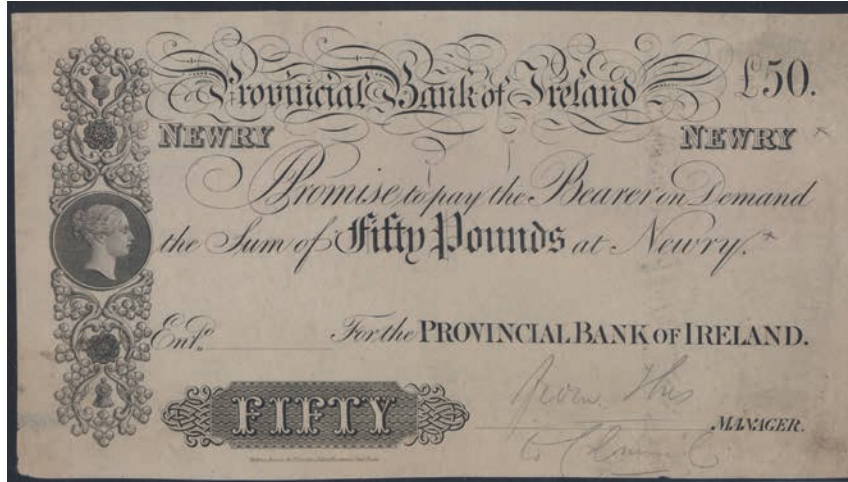 Provincial Bank of Ireland £50.
NEWRY NEWRY
Promise to pay the Bearer on Demand
the Sum of Fifty Pounds at Newry.
Entd. For the PROVINCIAL BANK OF IRELAND.
FIFTY
MANAGER.